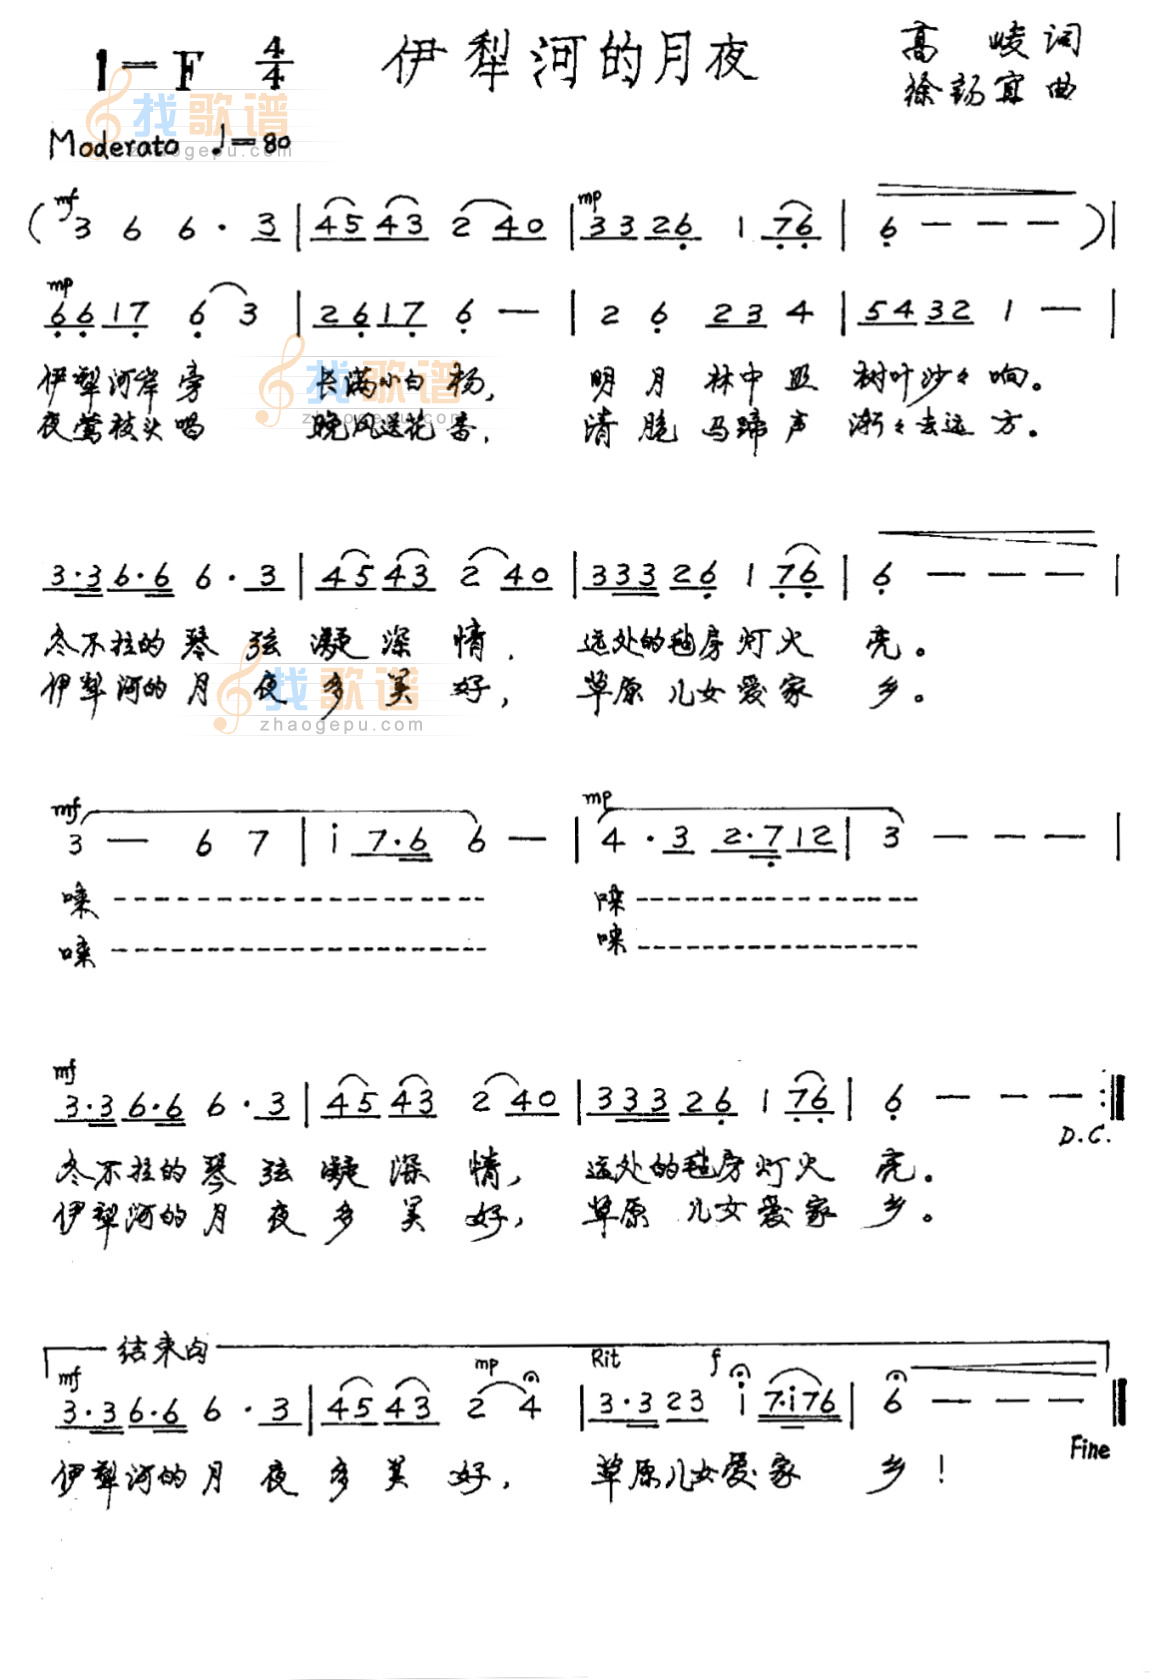 1=F 4/4 伊犁河的月夜 高崚词
徐锡宜曲
Moderato ♩=80
mf mp
( 3 6 6 · 3 | 45 43 2 40 | 33 26 1 76 | 6 — — — ) |
mp
66 17 6 3 | 26 17 6 — | 2 6 23 4 | 54 32 1 — |
伊犁河岸旁 长满小白杨, 明月林中照 树叶沙々响。
夜莺枝头唱 晚风送花香, 清脆马蹄声 渐々去远方。
3·3 6·6 6 · 3 | 45 43 2 40 | 333 26 1 76 | 6 — — — |
冬不拉的琴弦凝深情, 远处的毡房灯火亮。
伊犁河的月夜多美好, 草原儿女爱家乡。
mf mp
3 — 6 7 | i 7·6 6 — | 4 · 3 2·7 12 | 3 — — — |
唻 唻
唻 唻
mf
3·3 6·6 6 · 3 | 45 43 2 40 | 333 26 1 76 | 6 — — — :|
D.C.
冬不拉的琴弦凝深情, 远处的毡房灯火亮。
伊犁河的月夜多美好, 草原儿女爱家乡。
结束句
mf mp Rit f
3·3 6·6 6 · 3 | 45 43 2 4 | 3·3 23 i 7·i76 | 6 — — — ‖
Fine
伊犁河的月夜多美好, 草原儿女爱家乡!
找歌谱
zhaogepu.com
找歌谱
zhaogepu.com
找歌谱
zhaogepu.com